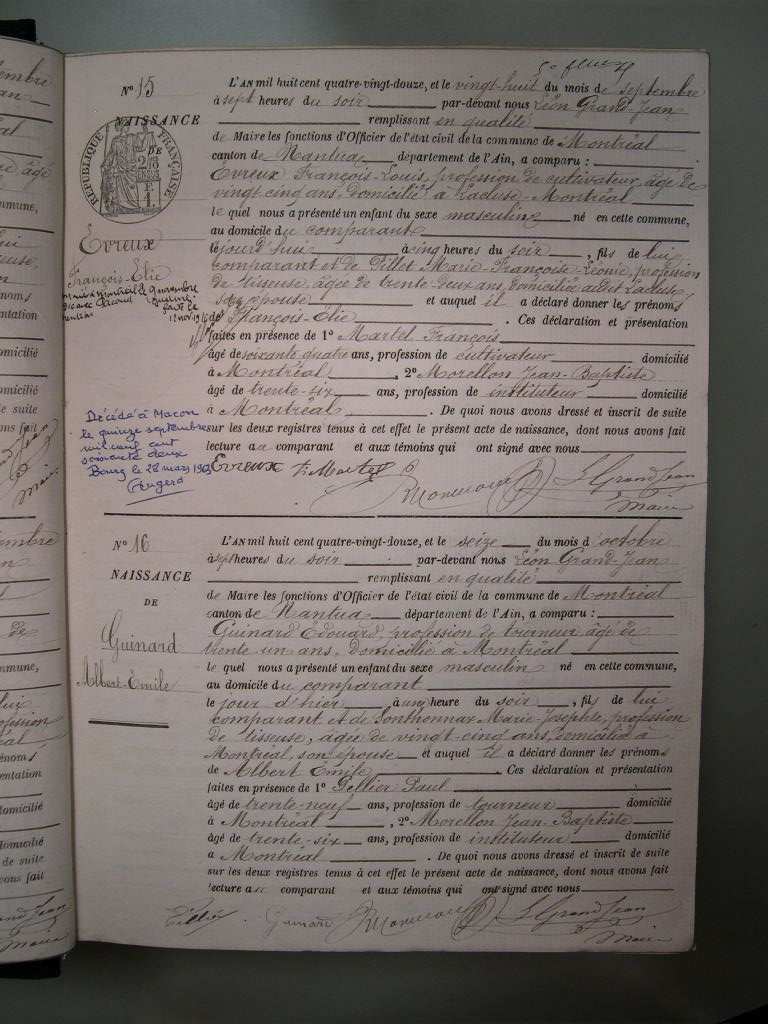 Nº 15
NAISSANCE
DE
RÉPUBLIQUE FRANÇAISE
Evreux
François-Elie
L'AN mil huit cent quatre-vingt-douze, et le vingt-huit du mois de septembre
à sept heures du soir par-devant nous Léon Grand-Jean
remplissant en qualité
de Maire les fonctions d'Officier de l'état civil de la commune de Montréal
canton de Nantua département de l'Ain, a comparu :
Evreux François-Louis, profession de cultivateur, âgé de
vingt cinq ans, domicilié à Lacluse-Montréal
le quel nous a présenté un enfant du sexe masculin né en cette commune,
au domicile du comparant
le jourd'hui à cinq heures du soir, fils de lui
comparant et de Pillet Marie-Françoise-Léonie, profession
de tisseuse, âgée de trente-deux ans, domiciliée audit Lacluse
son épouse et auquel il a déclaré donner les prénoms
de François-Elie. Ces déclaration et présentation
faites en présence de 1º Martel François
âgé de soixante quatre ans, profession de cultivateur domicilié
à Montréal, 2º Morellon Jean-Baptiste
âgé de trente-six ans, profession de instituteur domicilié
à Montréal. De quoi nous avons dressé et inscrit de suite
sur les deux registres tenus à cet effet le présent acte de naissance, dont nous avons fait
lecture au comparant et aux témoins qui ont signé avec nous
Décédé à Macon
le quinze septembre
mil neuf cent
soixante deux
Bourg le 28 mars 1963
Evreux F. Martel Morellon L Grand Jean
Maire
Nº 16
NAISSANCE
DE
Guinard
Albert-Emile
L'AN mil huit cent quatre-vingt-douze, et le seize du mois d'octobre
à sept heures du soir par-devant nous Léon Grand-Jean
remplissant en qualité
de Maire les fonctions d'Officier de l'état civil de la commune de Montréal
canton de Nantua département de l'Ain, a comparu :
Guinard Édouard, profession de tourneur âgé de
trente un ans, domicilié à Montréal
le quel nous a présenté un enfant du sexe masculin né en cette commune,
au domicile du comparant
le jour d'hier à une heure du soir, fils de lui
comparant et de Sonthonnax Marie-Josephte, profession
de tisseuse, âgée de vingt-cinq ans, domiciliée à
Montréal, son épouse et auquel il a déclaré donner les prénoms
de Albert Emile. Ces déclaration et présentation
faites en présence de 1º Pellier Paul
âgé de trente-neuf ans, profession de tourneur domicilié
à Montréal, 2º Morellon Jean-Baptiste
âgé de trente-six ans, profession de instituteur domicilié
à Montréal. De quoi nous avons dressé et inscrit de suite
sur les deux registres tenus à cet effet le présent acte de naissance, dont nous avons fait
lecture au comparant et aux témoins qui ont signé avec nous
Guinard Morellon L Grand Jean
Maire